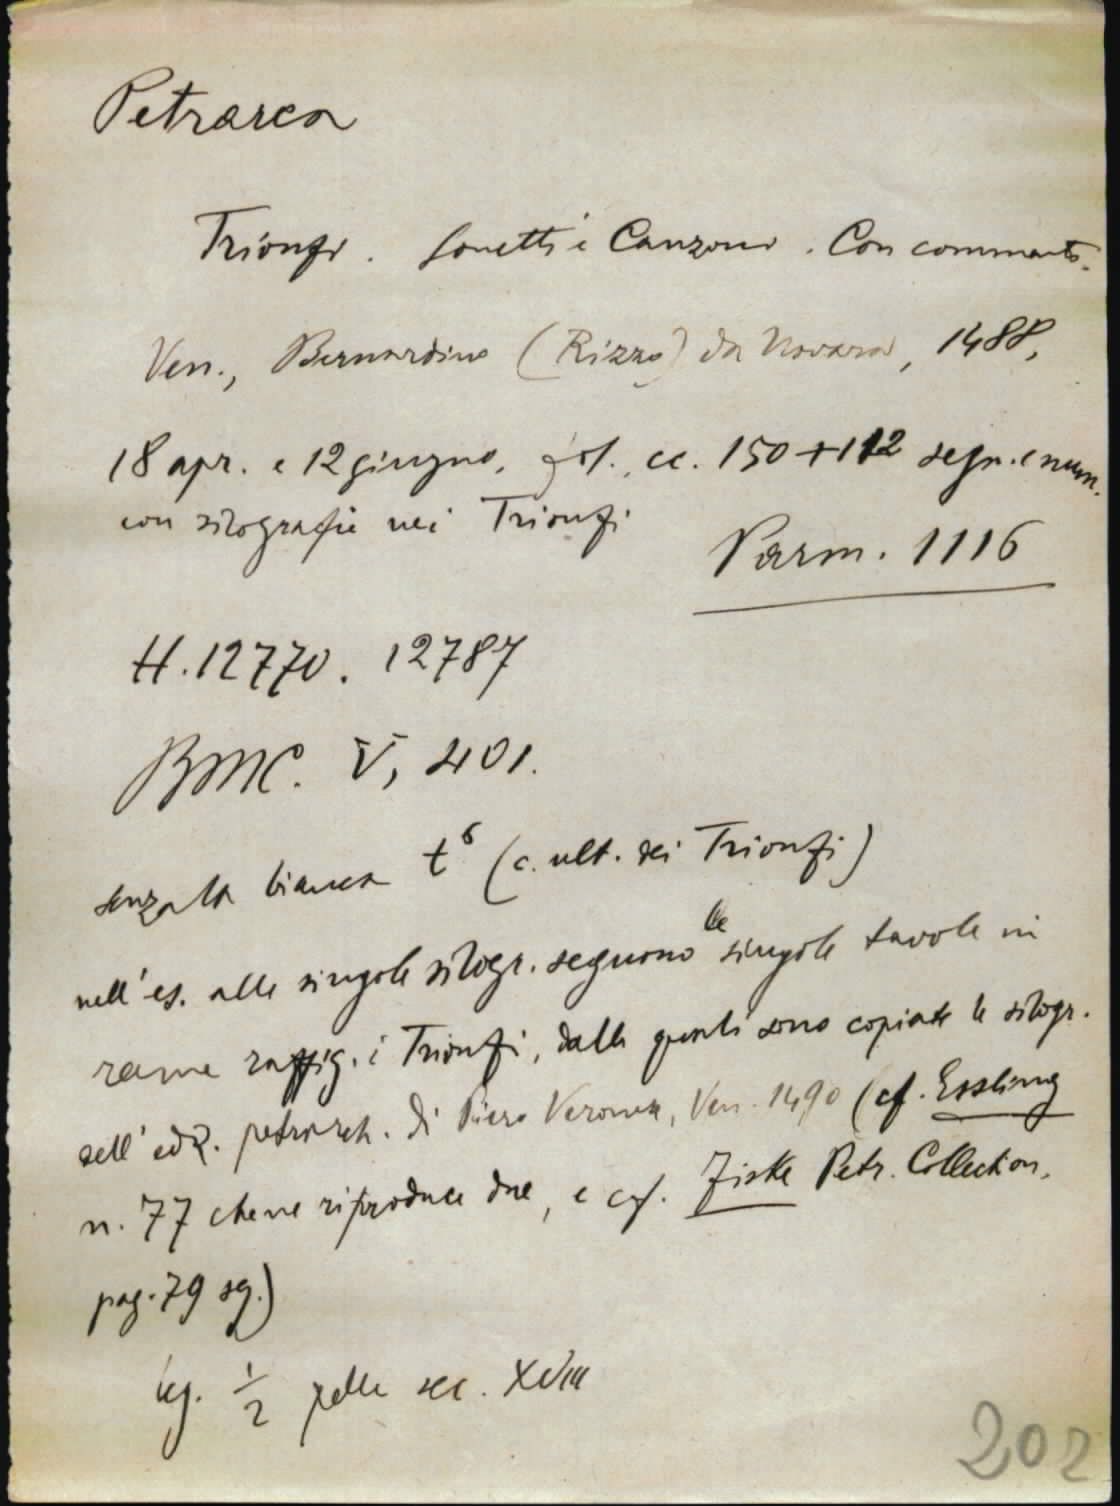 Petrarca
Trionfi. Sonetti e Canzoni. Con commento.
Ven., Bernardino (Rizzo) da Novara, 1488,
18 apr. e 12 giugno, fol., cc. 150 + 112 segn. e num.
con silografie nei Trionfi
Parm. 1116
H. 12770. 12787
BMC. V, 401.
senza la bianca t⁶ (c. ult. dei Trionfi)
nell'es. alle singole silogr. seguono le singole tavole in
rame raffig. i Trionfi, dalle quali sono copiate le silogr.
dell'ediz. petrarch. di Piero Veronese, Ven. 1490 (cf. Essling
n. 77 che ne riproduce due, e cf. Fiske Petr. Collection,
pag. 79 sg.)
leg. 1/2 pelle sec. XVIII
202